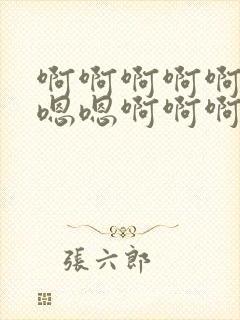 啊啊啊啊啊
嗯嗯啊啊啊
張六郎